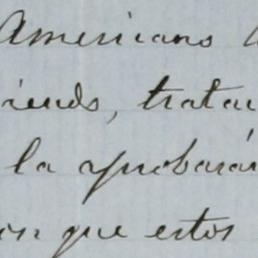 Americanos
iendo, tratar
la aprobará
que estos